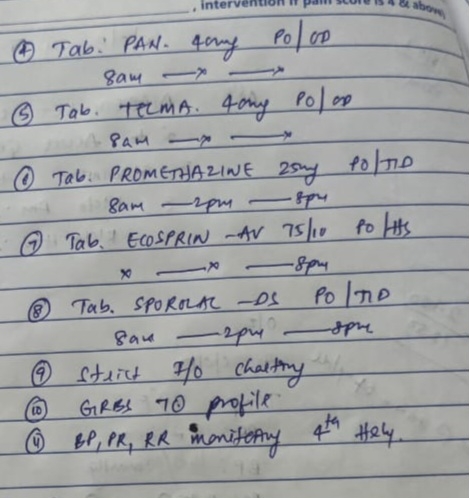 , intervention if pain score is 4 & above
④ Tab. PAN. 40mg PO/OD
8am —x —>
⑤ Tab. TELMA. 40mg PO/OD
8am —x —>
⑥ Tab. PROMETHAZINE 25mg PO/TID
8am —2pm —8pm
⑦ Tab. ECOSPRIN -AV 75/10 PO/HS
x —x —8pm
⑧ Tab. SPOROLAC -DS PO/TID
8am —2pm —8pm
⑨ Strict I/O charting
⑩ GRBS 7⊙ profile
⑪ BP, PR, RR monitoring 4th Hrly.